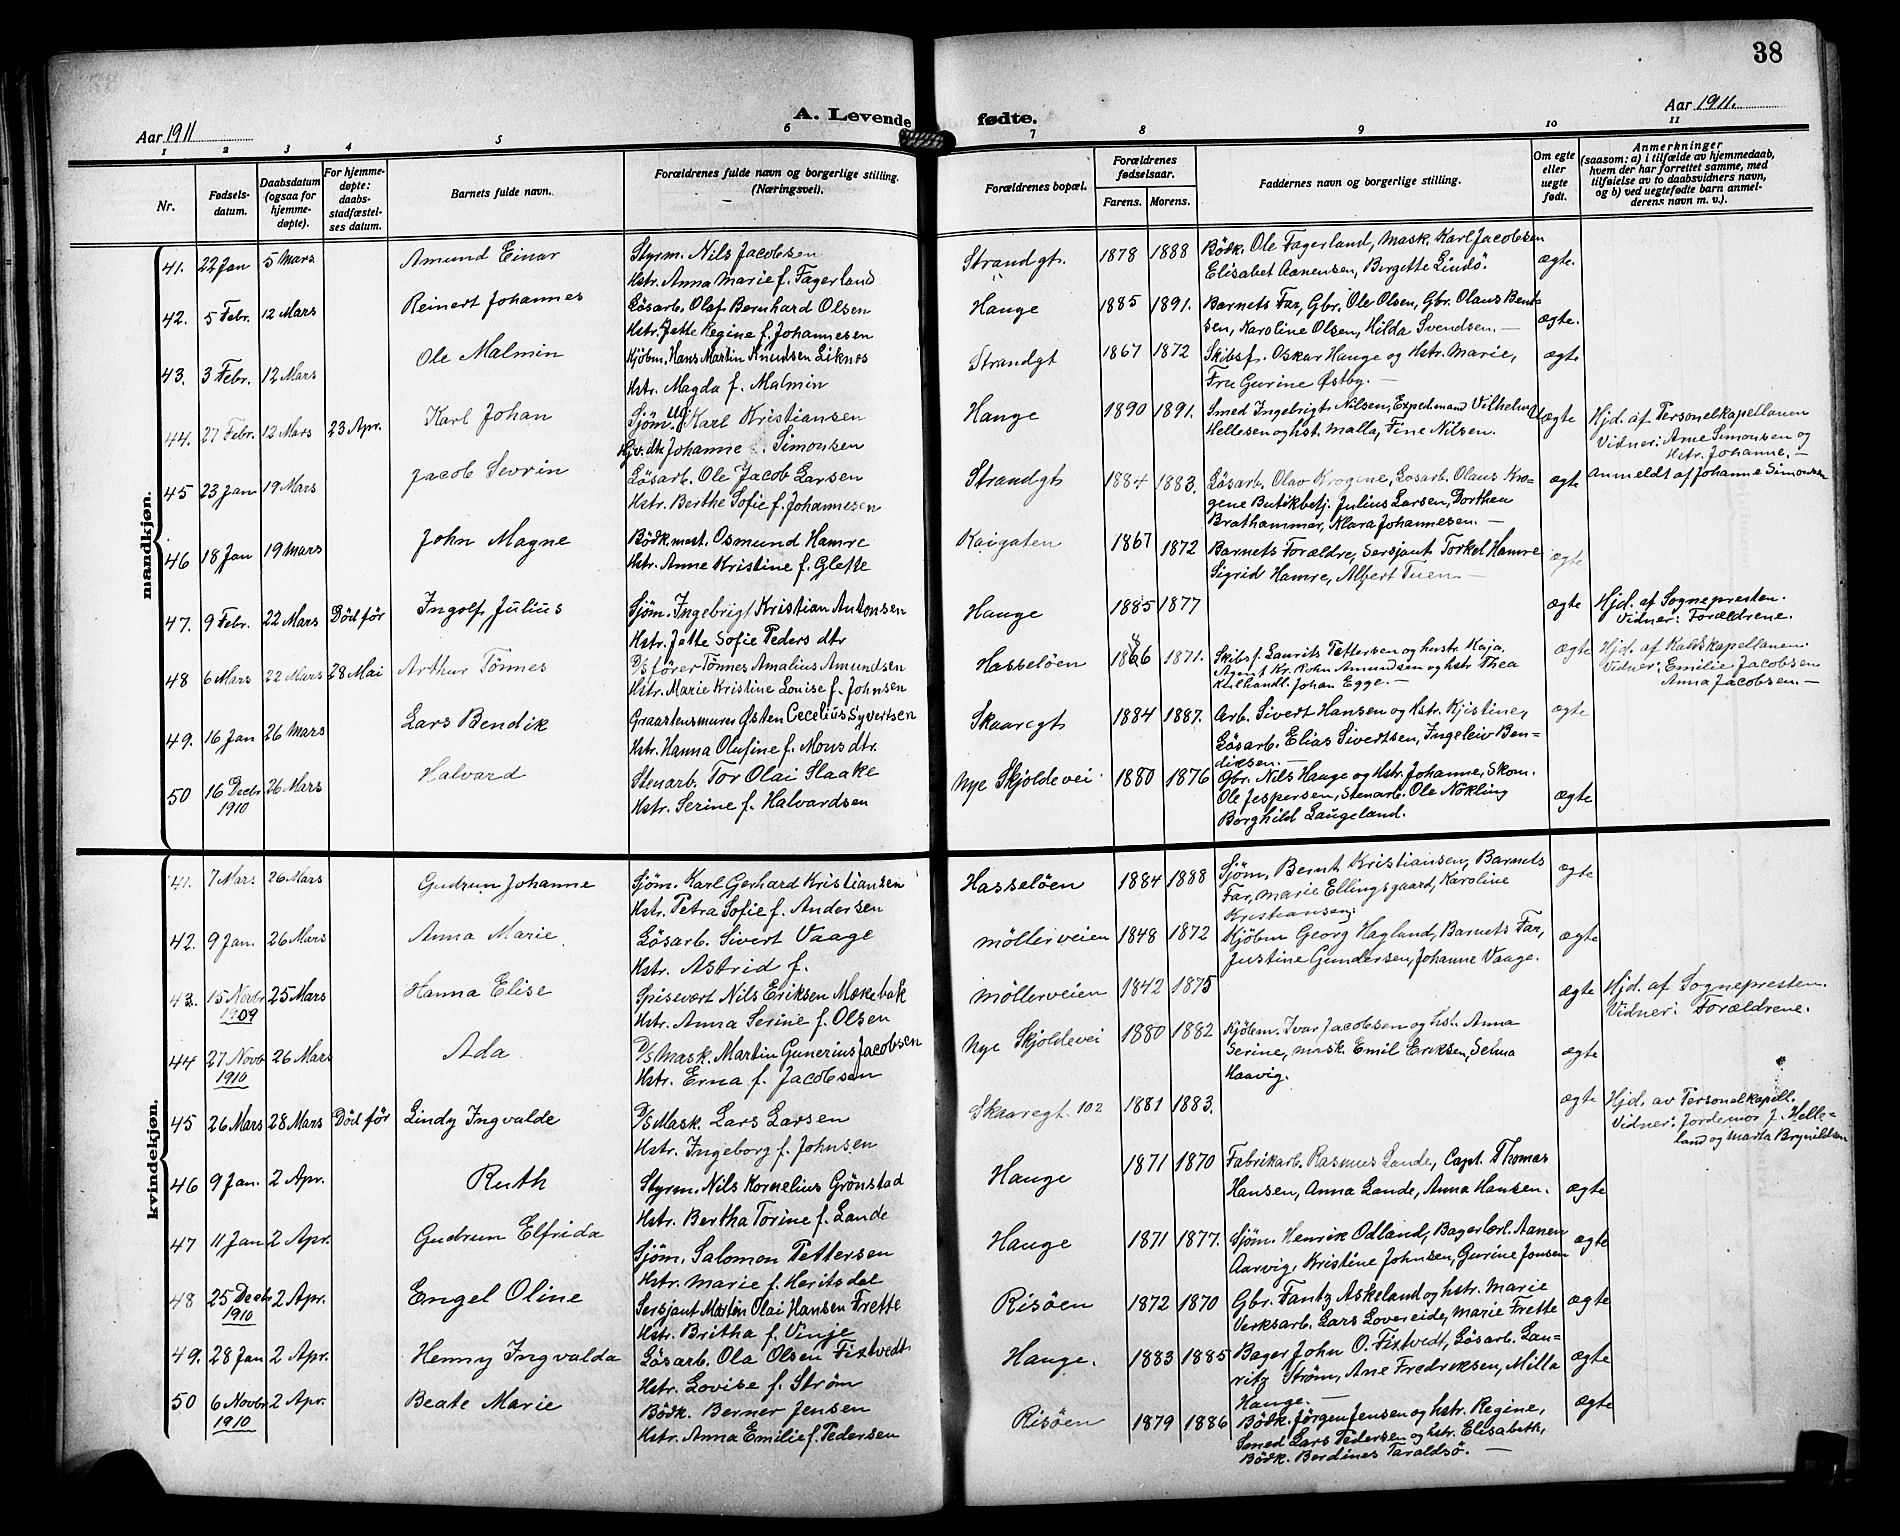 38
Aar 1911
A. Levende fødte.
Aar 1911.
1 2 3 4 5 6 7 8 9 10 11
Nr.
Fødsels-
datum.
Daabsdatum
(ogsaa for
hjemme-
døpte).
For hjemme-
døpte:
daabs-
stadfæstel-
ses datum.
Barnets fulde navn.
Forældrenes fulde navn og borgerlige stilling.
(Næringsvei).
Forældrenes bopæl.
Forældrenes
fødselsaar.
Farens. Morens.
Faddernes navn og borgerlige stilling.
Om egte
eller
uegte
født.
Anmerkninger
(saasom: a) i tilfælde av hjemmedaab,
hvem der har forrettet samme, med
tilføielse av to daabsvidners navn,
og b) ved uegtefødte barn anmel-
derens navn m. v.).
mandkjøn.
41. 22 Jan 5 Mars Amund Einar
Styrm. Nils Jacobsen
Hstr. Anna Marie f. Fagerland
Strandgt. 1878 1888
Bödk. Ole Fagerland, Mask. Karl Jacobsen
Elisabet Aanensen, Bergette Lindö.
ægte.
42. 5 Febr. 12 Mars Reinert Johannes
Lösarb. Olaf Bernhard Olsen
Hstr. Jette Regine f. Johannesen
Hauge 1885 1891.
Barnets Far, Gbr. Ole Olsen, Gbr. Olaus Bent-
sen, Karoline Olsen, Hilda Svendsen. —
ægte.
43. 3 Febr. 12 Mars Ole Malmin
Kjöbm. Hans Martin Knudsen Liknes
Hstr. Magda f. Malmin
Strandgt 1867 1872
Skibsf. Oskar Hauge og Hstr. Marie,
Fru Gurine Østby. —
ægte
44. 27 Febr. 12 Mars 23 Apr. Karl Johan
Sjöm. Ug. Karl Kristiansen
Johanne Simonsen
Hauge 1890 1891.
Smed Ingebrigt Nilsen, Exped.mand Vilhelm
Hellesen og hst. Malla, Tine Nilsen.
uægte
Hjd. af Personelkapellanen
Vidner: Arne Simonsen og
Hstr. Johanne. —
anmeldt af Johanne Simonsen
45 23 Jan 19 Mars Jacob Sevrin
Lösarb. Ole Jacob Larsen
Hstr. Berthe Sofie f. Johannesen
Strandgt 1884 1883.
Lösarb. Olav Krogene, Lösarb. Olaus Kro-
gene Butikbetj. Julius Larsen, Dorthea
Brathammer, Klara Johannesen. —
ægte
46 18 Jan 19 Mars John Magne
Bödk.mest. Osmund Hamre
Hstr. Anne Kristine f. Glette
Kaigaten 1867 1872
Barnets Forældre, Sersjant Torkel Hamre
Sigrid Hamre, Albert Tuen —
ægte
47. 9 Febr. 22 Mars Död för Ingolf Julius
Sjöm. Ingebrigt Kristian Antonsen
Hstr. Jette Sofie Peders dtr
Hauge 1885 1877
ægte
Hjd. af Sognepresten.
Vidner: Forældrene.
48 6 Mars 22 Mars 28 Mai Arthur Tönnes
D/s förer Tönnes Amalius Amundsen
Hstr. Marie Kristine Louise f. Johnsen
Hasselöen 1866 1871.
Skibsf. Laurits Pettersen og hustr. Kaja,
Agent Kr. Amundsen og hstr. Thea
Kulhandl. Johan Egge. —
ægte
Vidner: Emilie Jacobsen
Anna Jacobsen. —
49. 16 Jan 26 Mars Lars Bendik
Graastensmurer Østen Cecelius Syvertsen
Hstr. Hanna Olufine f. Monsdtr.
Skaaregt 1884 1887.
Arb. Sivert Hansen og Hstr. Kjistine,
Lösarb. Elias Sivertsen, Ingeleiv Ben-
diksen. —
ægte
50 16 Decbr 26 Mars Halvard
1910
Stenarb. Tor Olai Slaake
Hstr. Serine f. Halvardsen
Nye Skjoldevei 1880 1876
Gbr. Nils Hauge og Hstr. Johanne, Skom.
Ole Jespersen, Stenarb. Ole Nökling
Borghild Laugeland.
ægte
kvindekjøn.
41. 7 Mars 26 Mars Gudrun Johanne
Sjöm. Karl Gerhard Kristiansen
Hstr. Petra Sofie f. Andersen
Hasselöen 1884 1888
Sjöm. Bernt Kristiansen, Barnets
Far, Marie Ellingsgaard, Karoline
Kristiansen.
ægte
42. 9 Jan. 26 Mars Anna Marie
Lösarb. Sivert Vaage
Hstr. Astrid f.
Möllerveien 1848 1872
Kjöbm Georg Hagland, Barnets Far,
Justine Gundersen, Johanne Vaage.
ægte
43. 15 Novbr 25 Mars Hanna Elise
1909
Spisevært Nils Eriksen Mækebak
Hstr. Anna Serine f. Olsen
Möllerveien 1842 1875
ægte
Hjd. af Sognepresten.
Vidner: Forældrene.
44 27 Novb 26 Mars Ada
1910
D/s Mask. Martin Gunerius Jacobsen
Hstr. Erna f. Jacobsen
Nye Skjoldevei 1880 1882
Kjöbm. Ivar Jacobsen og hst. Anna
Serine, Mask. Emil Eriksen, Selma
Haavig.
ægte
45 26 Mars 28 Mars Död för Lindy Ingvalde
D/s Mask. Lars Larsen
Hstr. Ingeborg f. Johnsen
Skaaregt. 102 1881 1883.
ægte
Hjd. av Personelkapell.
Vidner: Jordemor J. Helle-
land og Marta Brynildsen
46 9 Jan. 2 Apr. Ruth
Styrm. Nils Kornelius Grönstad
Hstr. Bertha Torine f. Lande
Hauge 1871 1870
Fabrikarb. Rasmus Lande, Capt. Thomas
Hansen, Anna Lande, Anna Hansen.
ægte
47 11 Jan 2 Apr. Gudrun Elfrida
Sjöm. Salomon Pettersen
Hstr. Marie f. Heritsdal
Hauge 1871 1877.
Sjöm. Henrik Odland, Bagerlærl. Aanen
Aarvig, Kristine Johnsen, Gurine Jonsen
ægte
48 25 Decb 2 Apr. Engel Oline
1910
Sersjant Martin Olai Hansen Frette
Hstr. Britha f. Vinje
Risöen 1872 1870
Gbr. Fantz Askeland og hstr. Marie
Verksarb. Lars Lovereide, Marie Frette
ægte
49. 28 Jan 2 Apr. Henny Ingvalda
Lösarb. Ola Olsen Fistvedt
Hstr. Lovise f. Strøm
Hauge. 1883 1885
Bager John O. Fistvedt, Lösarb. Lau-
ritz Strøm, Ane Fredriksen, Milla
Hauge. —
ægte
50 6 Novbr 2 Apr. Beate Marie
1910
Bödk. Berner Jensen
Hstr. Anna Emilie f. Pedersen
Risöen 1879 1886
Bödk. Jörgen Jensen og hstr. Regine,
Smed Lars Pedersen og hstr. Elisabeth,
Bödk. Berdines Taraldsö. —
ægte